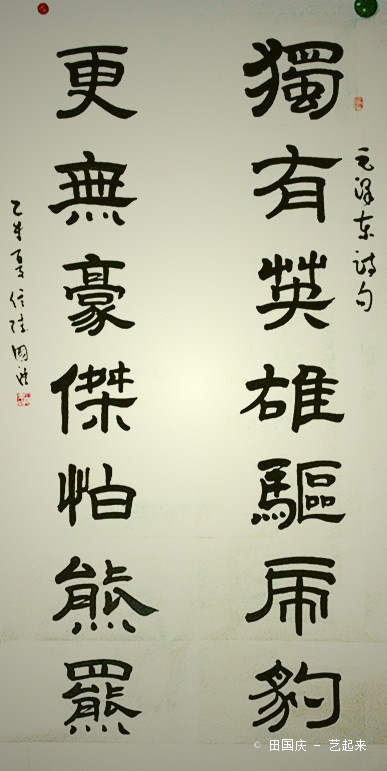 毛泽东诗句
獨有英雄驅虎豹
更無豪傑怕熊羆
乙未夏信陵國慶
© 田国庆 - 艺起来